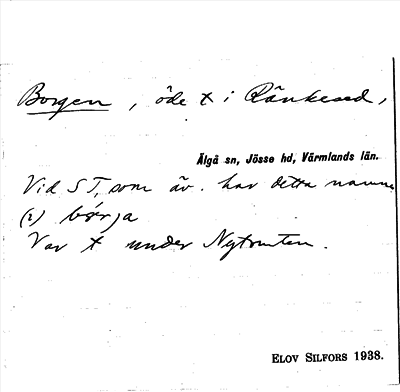 Borgen, öde × i Ränkesed,
Älgå sn, Jösse hd, Värmlands län.
Vid ST, som äv. har detta namn
(2) bör̀ja
Var × under Nytomten.
ELOV SILFORS 1938.